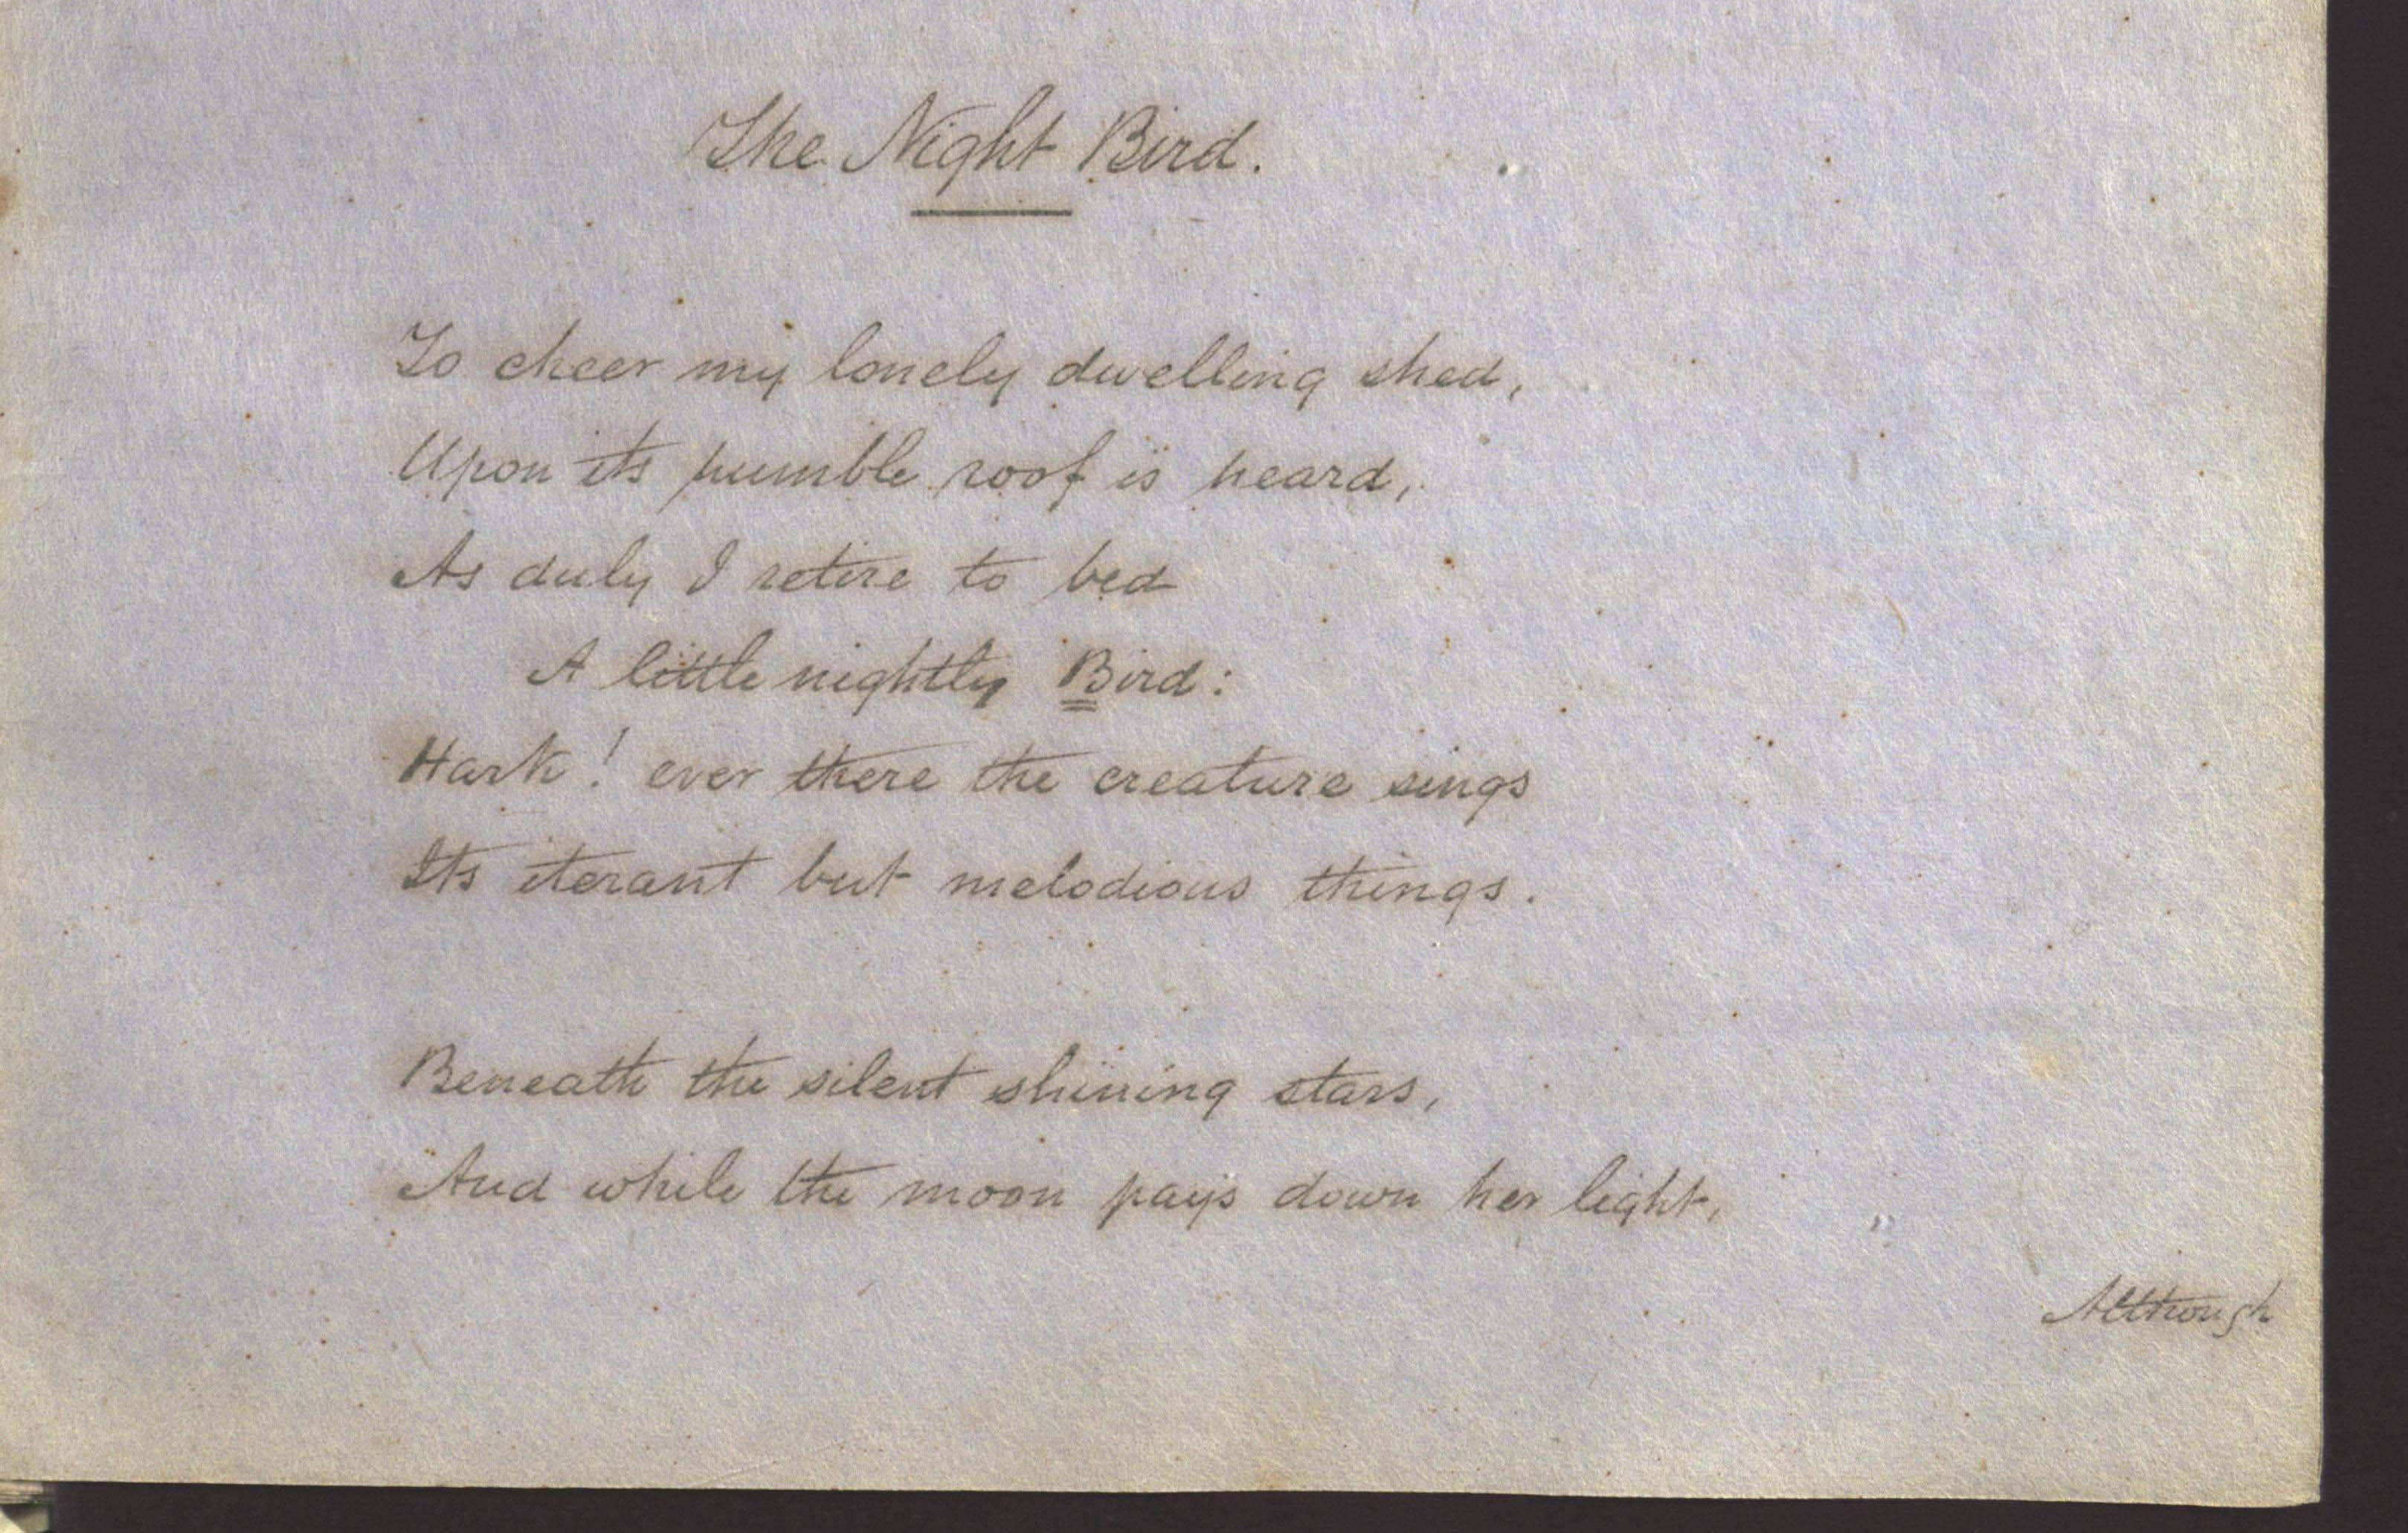 The Night Bird.
To cheer my lonely dwelling shed,
Upon its humble roof is heard,
As duly I retire to bed
A little nightly Bird:
Hark! ever there the creature sings
Its iterant but melodious things.
Beneath the silent shining stars,
And while the moon pays down her light,
Although